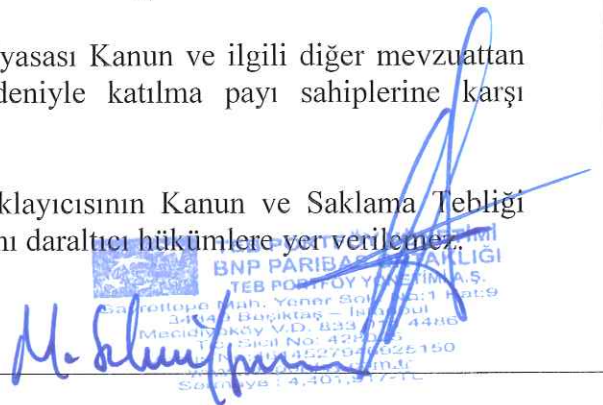 yasası Kanun ve ilgili diğer mevzuattan
deniyle katılma payı sahiplerine karşı
klayıcısının Kanun ve Saklama Tebliği
nı daraltıcı hükümlere yer verilemez.
BNP PARIBAS
TEB PORTFÖY YÖNETİMİ A.Ş.
Mah. Yener Sok. No:1 Kat:9
Beşiktaş – İstanbul
Mecidiyeköy V.D. 833
Sicil No:
Sermaye : 4,401,